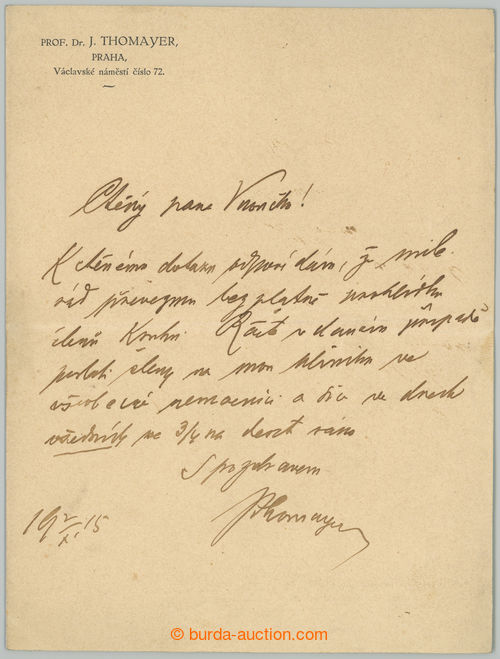 PROF. Dr. J. THOMAYER,
PRAHA,
Václavské náměstí číslo 72.
Ctěný pane
K ctěnému dotazu odpovídám, že milе
rád převezmu bezplatně prohlídku
členů Kruhu. Račte v daném případě
poslati členy na mou kliniku ve
všeobecné nemocnici a sice ve dnech
všedních ve 3/4 na deset ráno
S pozdravem
JThomayer
19 2/XI. 15
© burda-auction.com